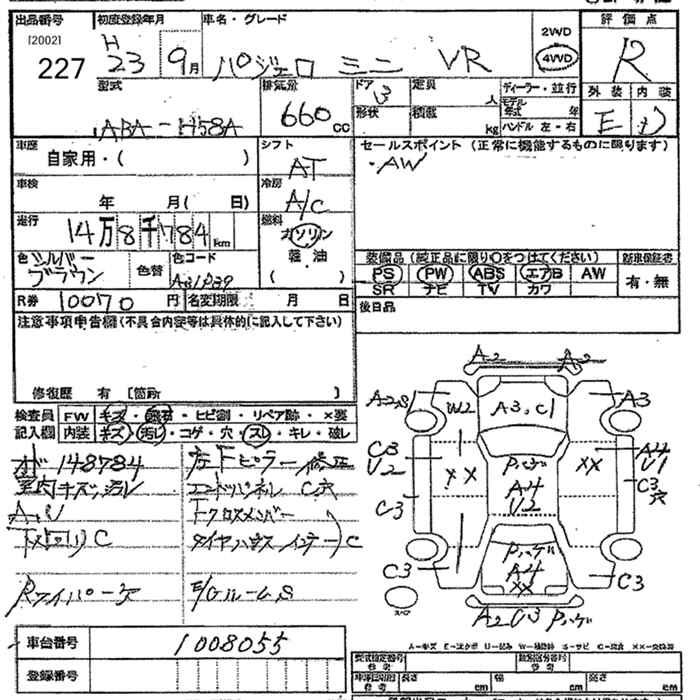 出品番号 初度登録年月 車名・グレード 2WD 4WD 評価点
[2002]
227 H 23 9月 パジェロ ミニ VR R
型式 排気量 ドア 3 定員 人 ディーラー・並行 外装 内装
ABA-H58A 660cc 形状 積載 kg モデル年式 年 ハンドル 左・右 E D
車歴 シフト セールスポイント (正常に機能するものに限ります)
自家用・( ) AT ・AW
車検 冷房
年 月( 日) A/C
走行 燃料
14万8千784km ガソリン
色 シルバー ブラウン 色替 色コード 軽・油
A31P39 ( )
装備品 (純正品に限り〇をつけてください) 新車保証書
PS PW ABS エアB AW 有・無
SR ナビ TV カワ
R券 10070円 名変期限 月 日 後日品
注意事項申告欄(不具合内容等は具体的に記入して下さい)
修復歴 有 [箇所 ]
検査員 FW キズ・飛石・ヒビ割・リペア跡・×要
記入欄 内装 キズ・汚レ・コゲ・穴・スレ・キレ・破レ
148784 左Fピラー修正
室内キズ、汚レ エンドパネルC穴
Tクロスメンバー
下回りC タイヤハウスインナーC
Rワイパー欠 E/GルームS
A2 A2
A2,S W2 A3,C1 A3
C3 U2 XX Rハゲ A4 U2 XX A4 U1
C3 C3 穴
C3 Rハゲ A4 XX C3
A2 C3 Rハゲ
車台番号 1008055
登録番号
A-キズ E-エクボ U-凹み W-補修跡 S-サビ C-腐食 XX-交換済
型式指定番号 類別区分番号
長さ cm 幅 cm 高さ cm